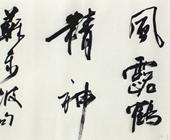 風露鶴
精神
蘇東坡句